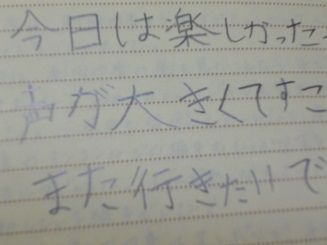 今日は楽しかったこ
声が大きくてすこ
また行きたいで